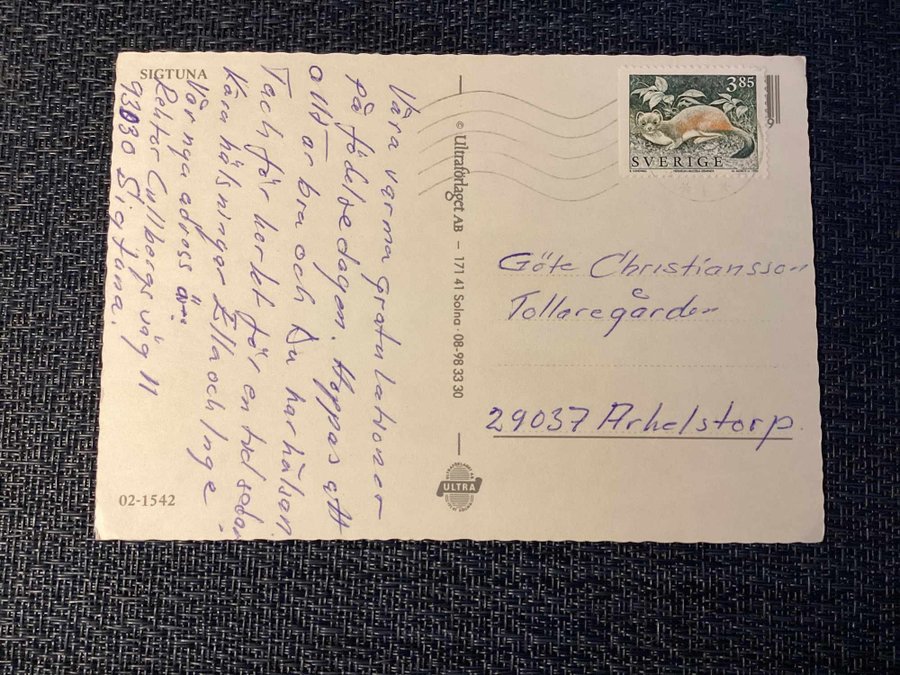 SIGTUNA
Våra varma gratulationer
på födelsedagen. Hoppas att
allt är bra och Du har hälsan.
Tack för kortet för en tid sedan
Kära hälsningar Ella och Inge
Vår nya adress är:
Rektor Cullbergs väg 11
93030 Sigtuna.
02-1542
© Ultraförlaget AB – 171 41 Solna · 08-98 33 30
ULTRA
3.85
SVERIGE
Göte Christiansson
Tollaregården
29037 Arkelstorp.